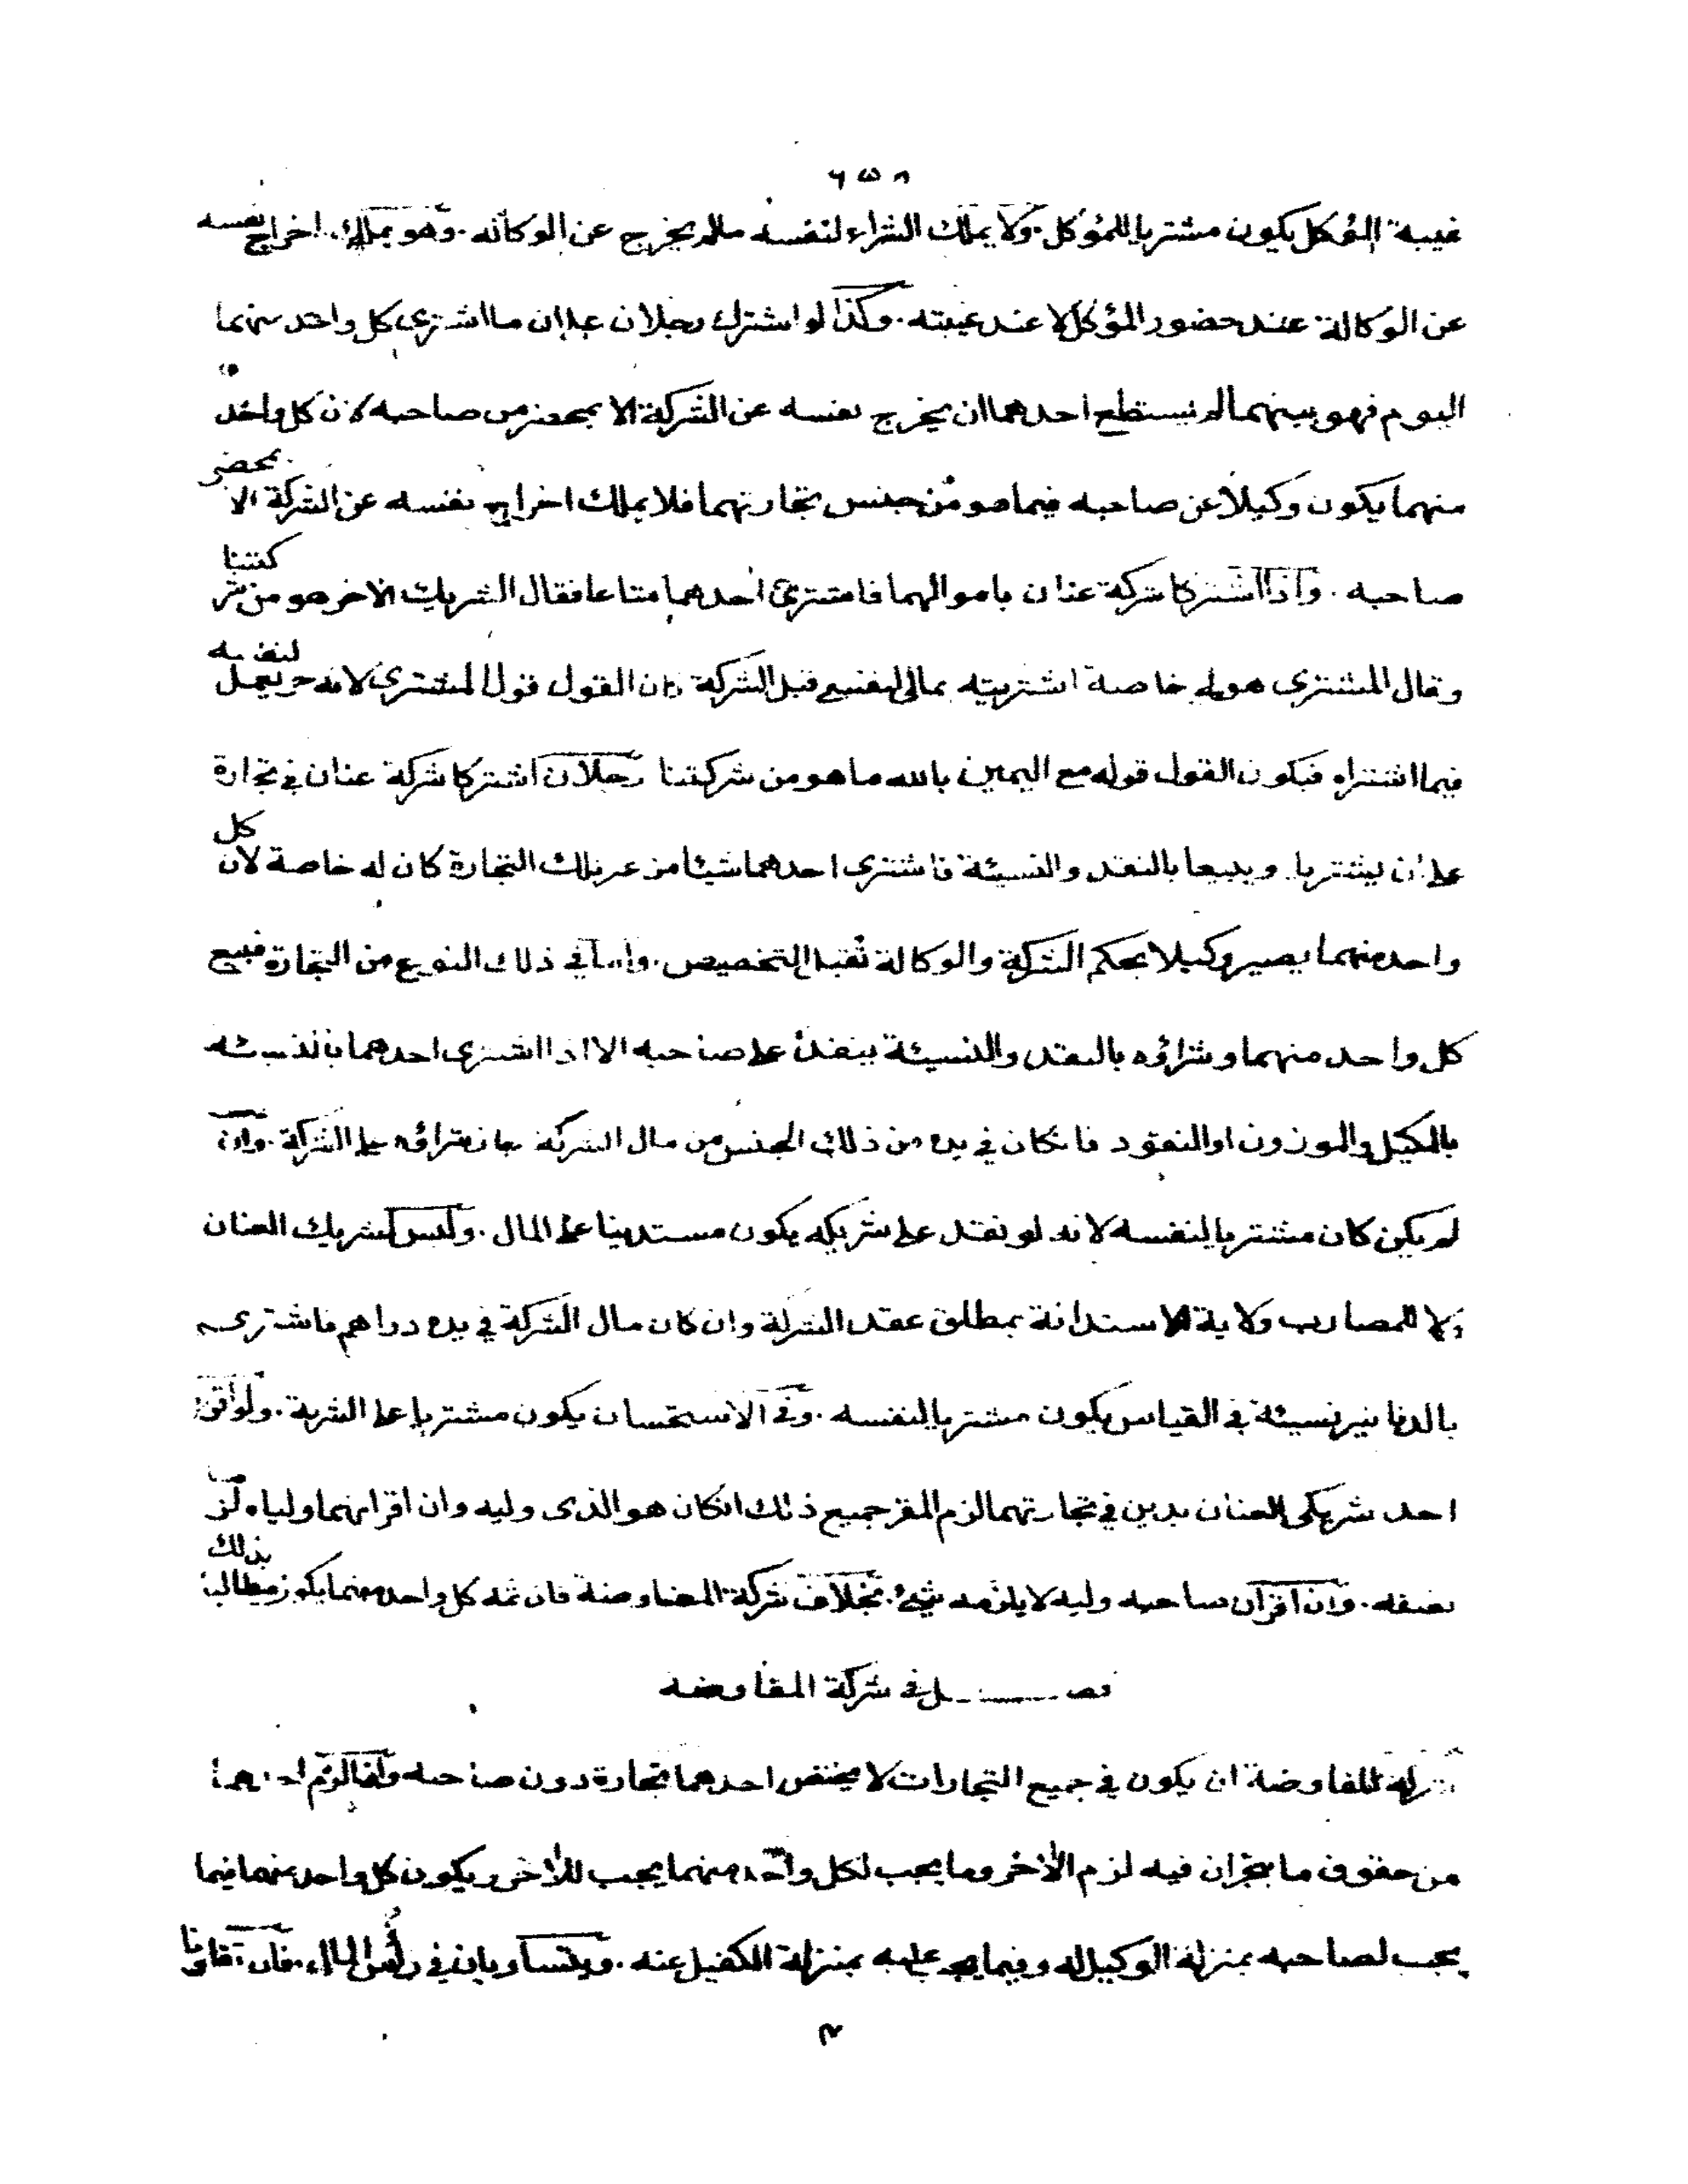 ٦٥٨
غيبة المؤكل يكون مشتريا للمؤكل. ولا يملك الشراء لنفسه مالم يخرج عن الوكالة. وهو يملك اخراج نفسه
عن الوكالة عند حضور المؤكل لا عند غيبته. وكذا لو اشترك رجلان على ان ما اشترى كل واحد منهما
اليوم فهو بينهما لم يستطع احدهما ان يخرج نفسه عن الشركة الا بمحضر من صاحبه لان كل واحد
منهما يكون وكيلا عن صاحبه فيما هو من جنس تجارتهما فلا يملك اخراج نفسه عن الشركة الا بمحضر
صاحبه. واذا اشتركا شركة عنان باموالهما فاشترى احدهما متاعا فقال الشريك الاخر هو من شركتنا
وقال المشترى هو لى خاصة اشتريته بمالى لنفسى قبل الشركة كان القول قول المشترى لانه حر يعمل لنفسه
فيما اشتراه فيكون القول قوله مع اليمين بالله ما هو من شركتنا رجلان اشتركا شركة عنان في تجارة
على ان يشتريا ويبيعا بالنقد والنسيئة فاشترى احدهما شيئا من غير تلك التجارة كان له خاصة لان كل
واحد منهما يصير وكيلا بحكم الشركة والوكالة تقبل التخصيص. واما في ذلك النوع من التجارة فبيع
كل واحد منهما وشراؤه بالنقد والنسيئة ينفذ على صاحبه الا اذا اشترى احدهما بالنسيئة
بالمكيل والموزون او النقود فانكان في يده من ذلك الجنس من مال الشركة جاز شراؤه على الشركة. وان
لم يكن كان مشتريا لنفسه لانه لو نفذ على شريكه يكون مستدينا على المال. وليس لشريك العنان
ولا للمضارب ولاية الاستدانة بمطلق عقد الشركة وان كان مال الشركة في يده دراهم فاشترى
بالدنانير نسيئة في القياس يكون مشتريا لنفسه. وفي الاستحسان يكون مشتريا على الشركة. ولو اقر
احد شريكى العنان بدين في تجارتهما لزم المقر جميع ذلك انكان هو الذى وليه وان اقر انهما ولياه لزمه
نصفه. وان اقر ان صاحبه وليه لا يلزمه شئ. بخلاف شركة المفاوضة فان ثمه كل واحد منهما يكون مطالبا بذلك
فصــــــل في شركة المفاوضه
شركة المفاوضة ان يكون في جميع التجارات لا يختص احدهما بتجارة دون صاحبه وان ما لزم احدهما
من حقوق ما يتجران فيه لزم الاخر وما يجب لكل واحد منهما يجب للاخر ويكون كل واحد منهما فيما
يجب لصاحبه بمنزلة الوكيل له وفيما يجب عليه بمنزلة الكفيل عنه. ويتساويان في رأس المال. فان تفاوتا